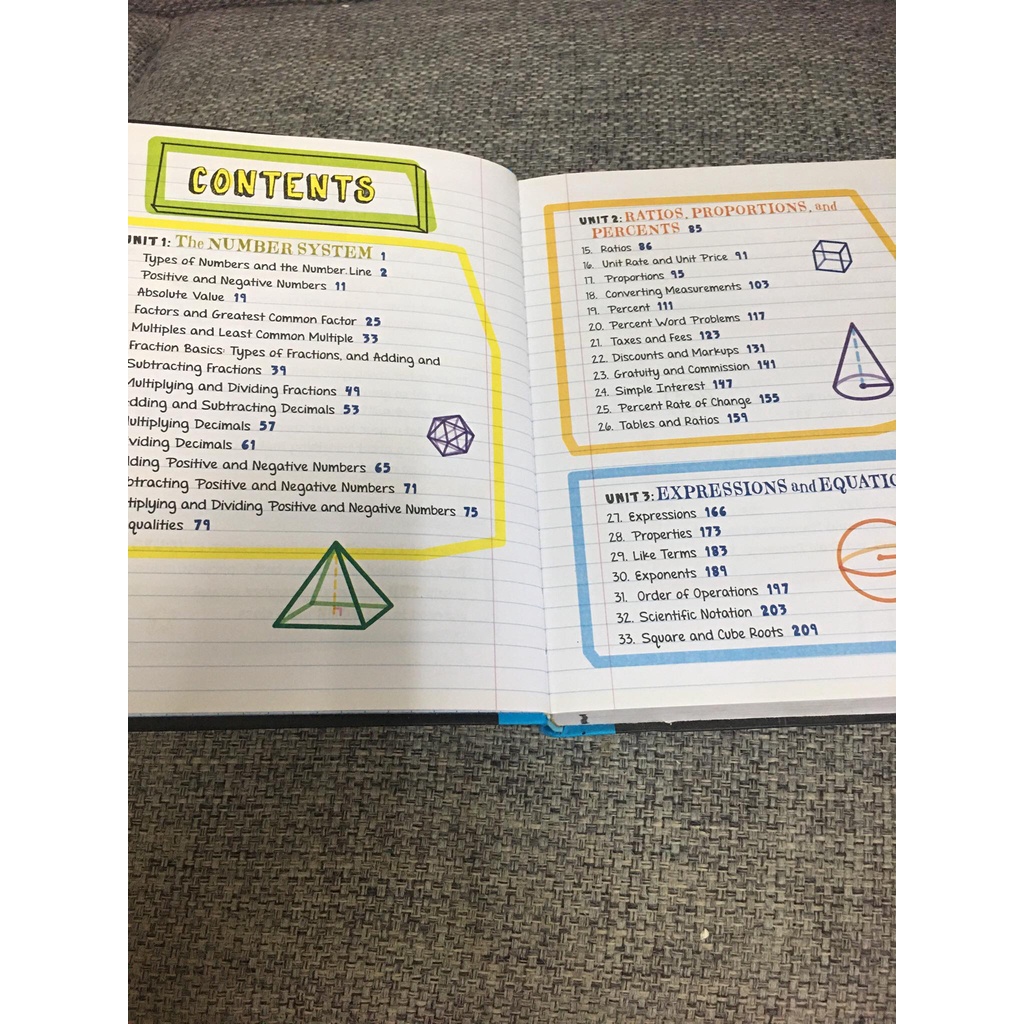 CONTENTS
UNIT 1: The NUMBER SYSTEM 1
Types of Numbers and the Number Line 2
Positive and Negative Numbers 11
Absolute Value 19
Factors and Greatest Common Factor 25
Multiples and Least Common Multiple 33
Fraction Basics: Types of Fractions, and Adding and
Subtracting Fractions 39
Multiplying and Dividing Fractions 49
dding and Subtracting Decimals 53
ultiplying Decimals 57
viding Decimals 61
lding Positive and Negative Numbers 65
btracting Positive and Negative Numbers 71
tiplying and Dividing Positive and Negative Numbers 75
qualities 79
UNIT 2: RATIOS, PROPORTIONS, and
PERCENTS 85
15. Ratios 86
16. Unit Rate and Unit Price 91
17. Proportions 95
18. Converting Measurements 103
19. Percent 111
20. Percent Word Problems 117
21. Taxes and Fees 123
22. Discounts and Markups 131
23. Gratuity and Commission 141
24. Simple Interest 147
25. Percent Rate of Change 155
26. Tables and Ratios 159
UNIT 3: EXPRESSIONS and EQUATIO
27. Expressions 166
28. Properties 173
29. Like Terms 183
30. Exponents 189
31. Order of Operations 197
32. Scientific Notation 203
33. Square and Cube Roots 209